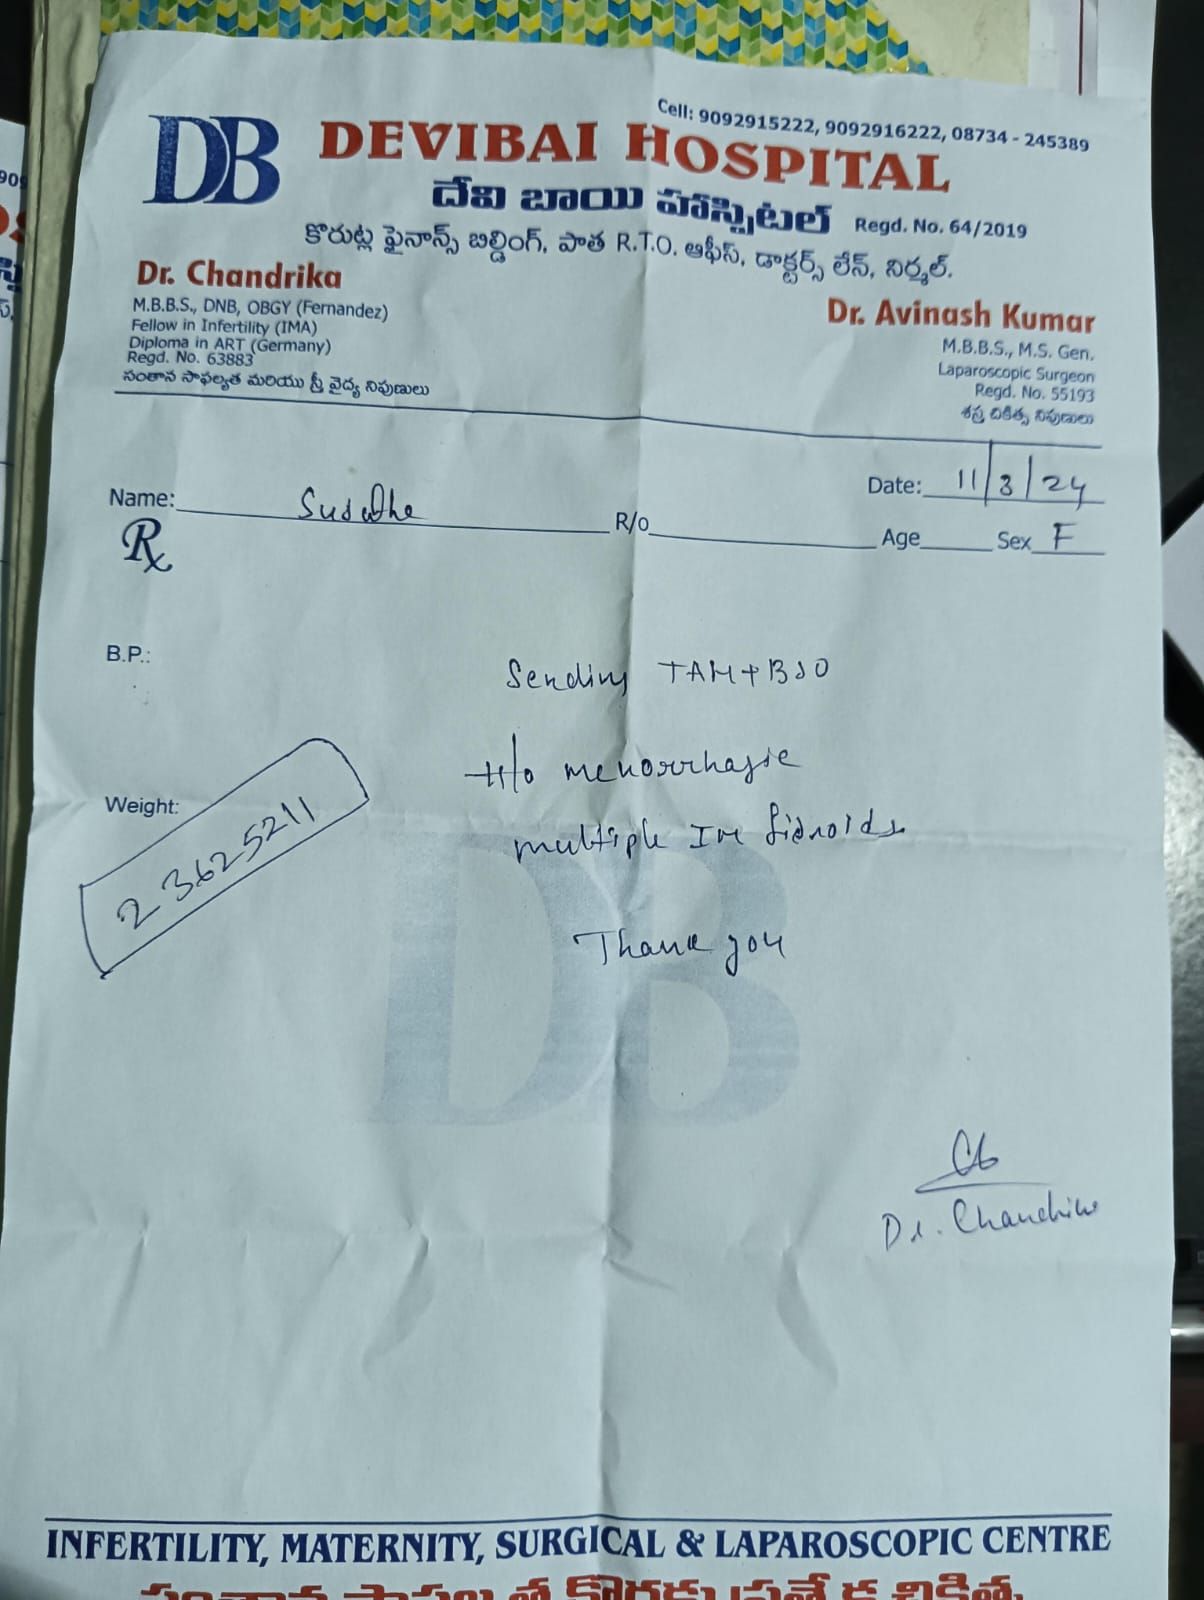 Cell: 9092915222, 9092916222, 08734 - 245389
DB DEVIBAI HOSPITAL
దేవి బాయి హాస్పిటల్ Regd. No. 64/2019
కొరుట్ల ఫైనాన్స్ బిల్డింగ్, పాత R.T.O. ఆఫీస్, డాక్టర్స్ లేన్, నిర్మల్.
Dr. Chandrika
M.B.B.S., DNB, OBGY (Fernandez)
Fellow in Infertility (IMA)
Diploma in ART (Germany)
Regd. No. 63883
సంతాన సాఫల్యత మరియు స్త్రీ వైద్య నిపుణులు
Dr. Avinash Kumar
M.B.B.S., M.S. Gen.
Laparoscopic Surgeon
Regd. No. 55193
శస్త్ర చికిత్స నిపుణులు
Date: 11/3/24
Name: R/o
Age Sex F
Rx
B.P.:
Sending TAH+BSO
H/o menorrhagie
Weight:
23625211
multiple IM fibroids
Thank you
Dr. Chandrika
DB
INFERTILITY, MATERNITY, SURGICAL & LAPAROSCOPIC CENTRE
సంతాన సాఫల్యత కొరకు ప్రత్యేక చికిత్స